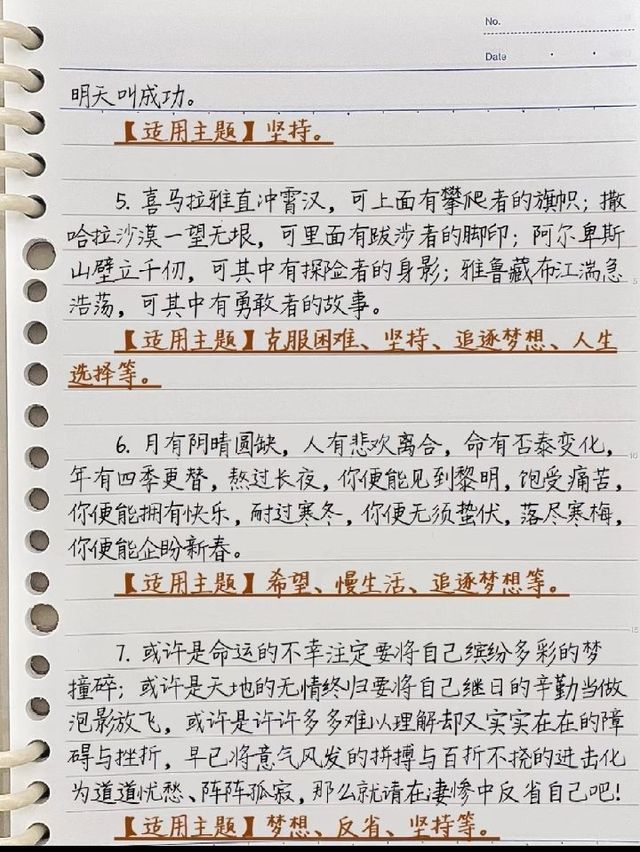 No.
Date
明天叫成功。
【适用主题】坚持。
5. 喜马拉雅直冲霄汉，可上面有攀爬者的旗帜；撒
哈拉沙漠一望无垠，可里面有跋涉者的脚印；阿尔卑斯
山壁立千仞，可其中有探险者的身影；雅鲁藏布江湍急
浩荡，可其中有勇敢者的故事。
【适用主题】克服困难、坚持、追逐梦想、人生
选择等。
6. 月有阴晴圆缺，人有悲欢离合，命有否泰变化，
年有四季更替，熬过长夜，你便能见到黎明，饱受痛苦，
你便能拥有快乐，耐过寒冬，你便无须蛰伏，落尽寒梅，
你便能企盼新春。
【适用主题】希望、慢生活、追逐梦想等。
7. 或许是命运的不幸注定要将自己缤纷多彩的梦
撞碎；或许是天地的无情终归要将自己继日的辛勤当做
泡影放飞，或许是许许多多难以理解却又实实在在的障
碍与挫折，早已将意气风发的拼搏与百折不挠的进击化
为道道忧愁、阵阵孤寂，那么就请在凄惨中反省自己吧！
【适用主题】梦想、反省、坚持等。